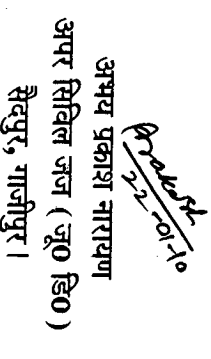 Prakash
22-01-10
अभय प्रकाश नारायण
अपर सिविल जज ( जू० डि० )
सैदपुर, गाजीपुर।